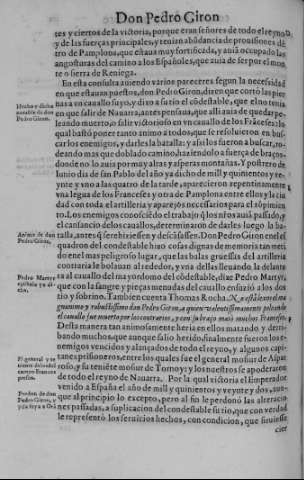 Don Pedro Giron
tes y ciertos de la victoria, porque eran señores de todo el reyno
y de las fuerças principales, y tenian abũdancia de prouisiones dẽ
tro de Pamplona, que estaua muy fortificada, y auiã ocupado las
angosturas del camino a los Españoles, que auia de ser por el mon
te o sierra de Reniega.
En esta consulta auiendo varios pareceres segun la necessidad
en que estauan puestos, don Pedro Giron, dizen que cortò las pier
nas a vn cauallo suyo, y dixo a su tio el cõdestable, que el no tenia
en que salir de Nauarra, antes pensaua, que alli auia de quedar pe-
leando muerto, o salir victorioso en vn cauallo de los Frãceses: lo
qual bastò poner tanto animo a todos, que se resoluieron en bus-
car los enemigos, y darles la batalla: y assi los fueron a buscar, ro-
deando mas que doblado camino, haziendolo a fuerça de braços
donde no le auia por muy altas y asperas montañas. Y postrero de
Iunio dia de san Pablo del año ya dicho de mill y quinientos y ve-
ynte y vno a las quatro de la tarde, aparecieron repentinamente
vna legua de los Franceses y otra de Pamplona entre ellos y la ciu
dad con toda el artilleria y aparejos necessarios para el rõpimien
to. Los enemigos conosciẽdo el trabajo q̃ los nr̃os auiã passado, y
el cansancio de los cauallos, determinaron de darles luego la ba-
talla, antes q̃ se rehiziessen y descãssassen. Don Pedro Giron en el es
quadron del condestable hizo cosas dignas de memoria tan meti
do en el mas peligroso lugar, que las balas gruessas del artilleria
contraria le bolauan al rededor, y vna dellas lleuando la delante
ra al cauallo del mayordomo del cõdestable, dize Pedro Martyr,
que con la sangre y pieças menudas del cauallo ensuziò a los dos
tio y sobrino. Tambien cuenta Thomas Rocha
Desta manera tan animosamente heria en ellos matando y derri-
bando muchos, que aunque salio herido, finalmente fueron los e-
nemigos vencidos y alançados de todo el reyno, y algunos capi-
tanes prisioneros, entre los quales fue el general mosiur de Aspar
roso, y su teniẽte mosiur de Tornoy: y los nuestros se apoderaron
de todo el reyno de Nauarra. Por la qual victoria el Emperador
venido a España el año de mill y quinientos y veynte y dos, aun-
que al principio lo excepto, pero al fin le perdonò las alteracio-
nes passadas, a suplicacion del condestable su tio, que con verdad
le representò los seruicios hechos, con condicion, que siruiesse
cier
Hecho y dicho
notable de don
Pedro Giron.
Animo de don
Pedro Giron.
Pedro Martyr
epistola ya di-
cha.
El general y te
niente del
campo Frances
presos.
Perdon de don
Pedro Giron, y